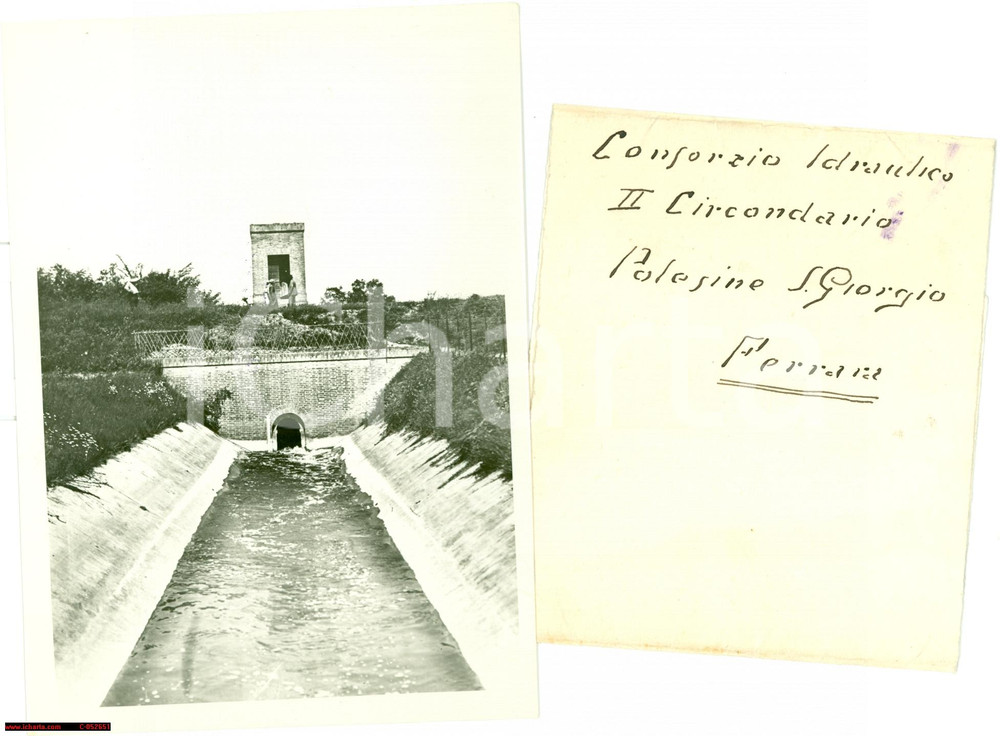 Consorzio Idraulico
II Circondario
Polesine S. Giorgio
Ferrara
icharta
www.icharta.com C-052651